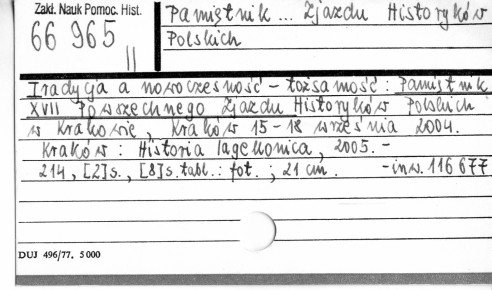 Zakł. Nauk Pomoc. Hist.
66 965
II
Pamiętnik ... Zjazdu Historyków
Polskich
Tradycja a nowoczesność - tożsamość : Pamiętnik
XVII Powszechnego Zjazdu Historyków Polskich
w Krakowie, Kraków 15-18 września 2004.
Kraków : Historia Iagellonica, 2005. -
214, [2] s., [8] s. tabl. : fot. ; 21 cm. - inw. 116 677
DUJ 496/77. 5 000